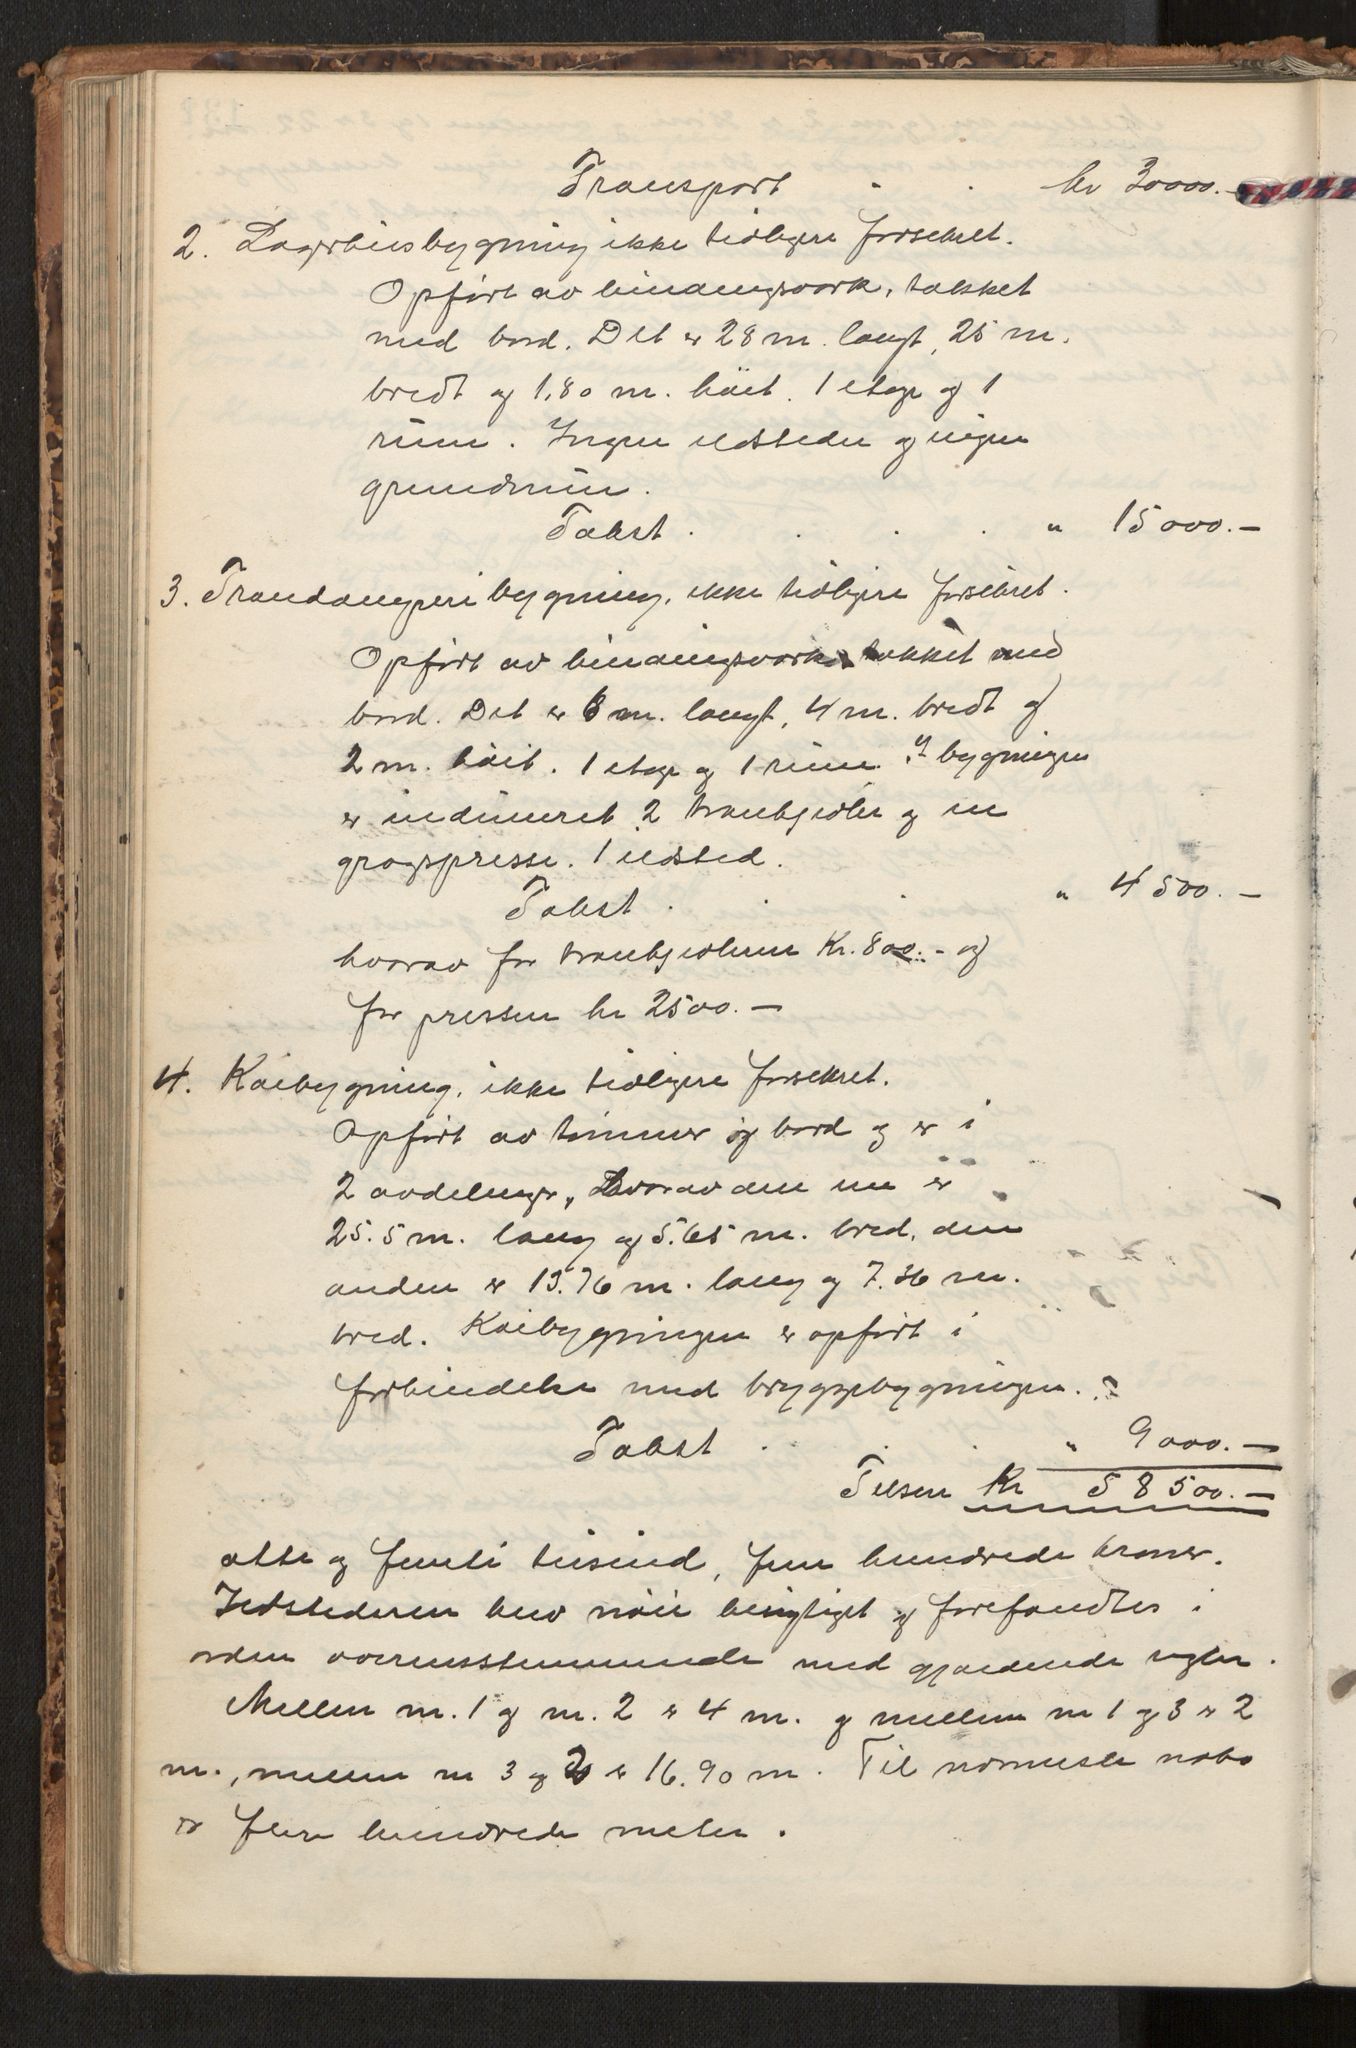 Transport . . kr 30000.-
2. Lagerhusbygning ikke tidligere forsikret.
Opført av bindingsverk, tækket
med bord. Det er 28 m. langt, 25 m.
bredt og 1,80 m. høit. 1 etage og 1
rum. Ingen ildsteder og ingen
grundmur.
Takst . . . . " 15000.-
3. Trandamperibygning, ikke tidligere forsikret.
Opført av bindingsverk tækket med
bord. Det er 6 m. langt, 4 m. bredt og
2 m. høit. 1 etage og 1 rum. I bygningen
er indmuret 2 trankjedler og en
graspresse. 1 ildsted.
Takst . . . " 4500.-
hvorav for trankjedlerne Kr. 800.- og
for pressen kr 2500.-
4. Kaibygning, ikke tidligere forsikret.
Opført av tømmer og bord og er i
2 avdelinger, hvorav den ene er
25.5 m. lang og 5.65 m. bred, den
anden er 13.76 m. lang og 7.36 m.
bred. Kaibygningen er opført i
forbindelse med bryggebygningen.
Takst . . . " 9000.-
Tilsm Kr 58500.-
otte og femti tusind, fem hundrede kroner.
Ildstederen blev nøie besigtiget og forefandtes i
orden overensstemmende med gjældende regler.
Mellem nr. 1 og nr. 2 er 4 m. og mellem nr 1 og 3 er 2
m., mellem nr 3 og 2 er 16.90 m. Til nærmeste nabo
er flere hundrede meter.